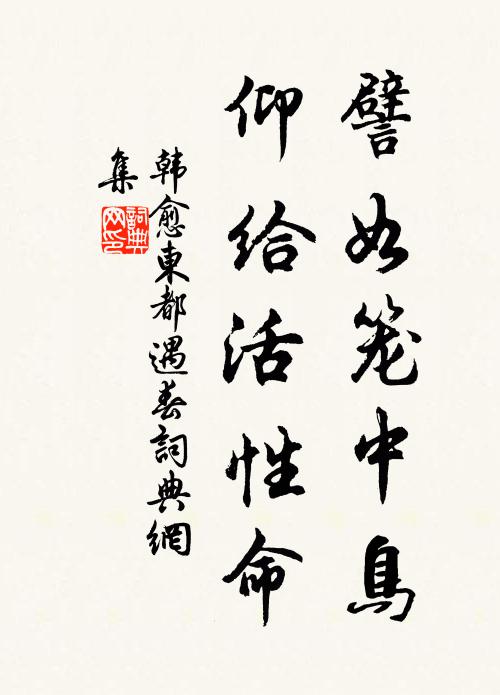 譬如笼中鳥
仰给活性命
韩愈東都遇春詞典網
集
詞典
网印